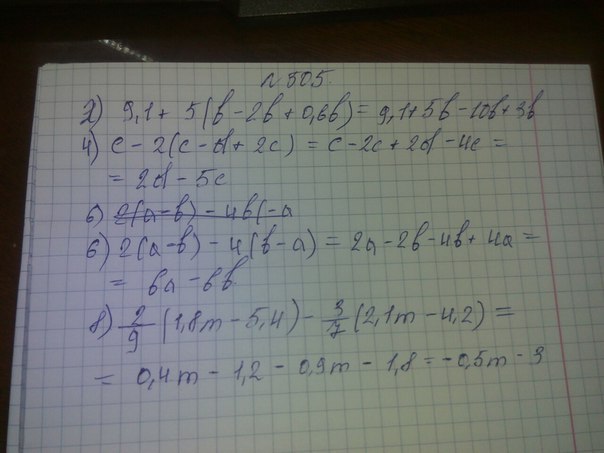 № 505.
2) 9,1 + 5(b - 2b + 0,6b) = 9,1 + 5b - 10b + 3b
4) c - 2(c - d + 2c) = c - 2c + 2d - 4c =
= 2d - 5c
6) 2(a - b) - 4b(-a
6) 2(a - b) - 4(b - a) = 2a - 2b - 4b + 4a =
= 6a - 6b
8) 2/9 (1,8m - 5,4) - 3/7 (2,1m - 4,2) =
= 0,4m - 1,2 - 0,9m - 1,8 = -0,5m - 3